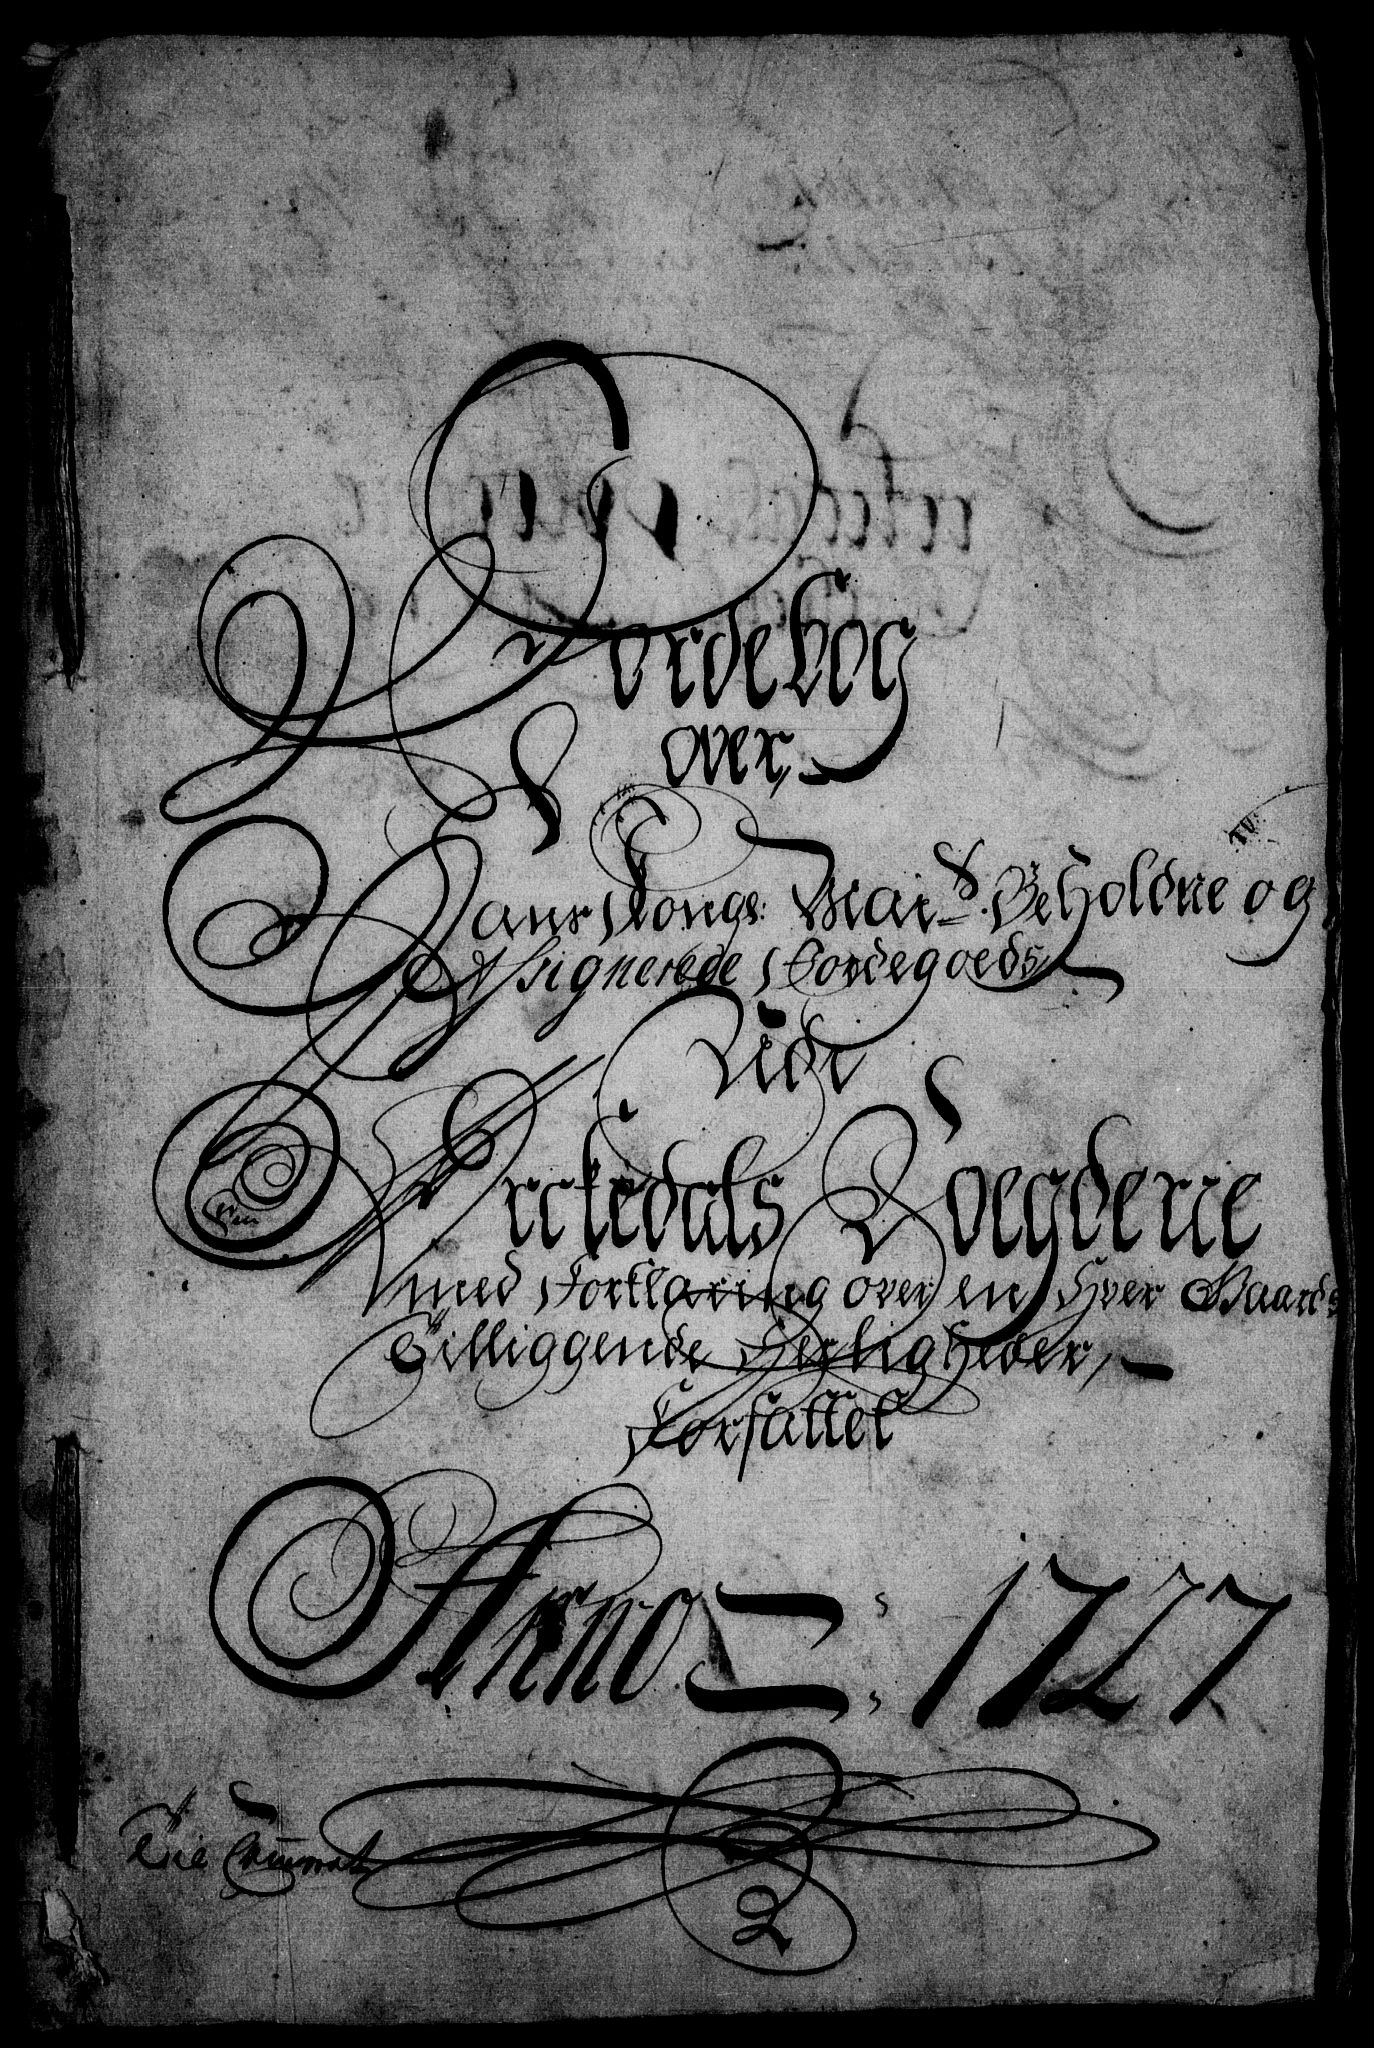 Jordebog
over,
Hans Kongl: Mai.ds Beholdne og
Assignerede Jordegoeds
Udi
Orckedals Voegderie
med Forklaring over en Hver Gaards
Tilliggende Herligheder,
Forfattet
Anno 1727
2